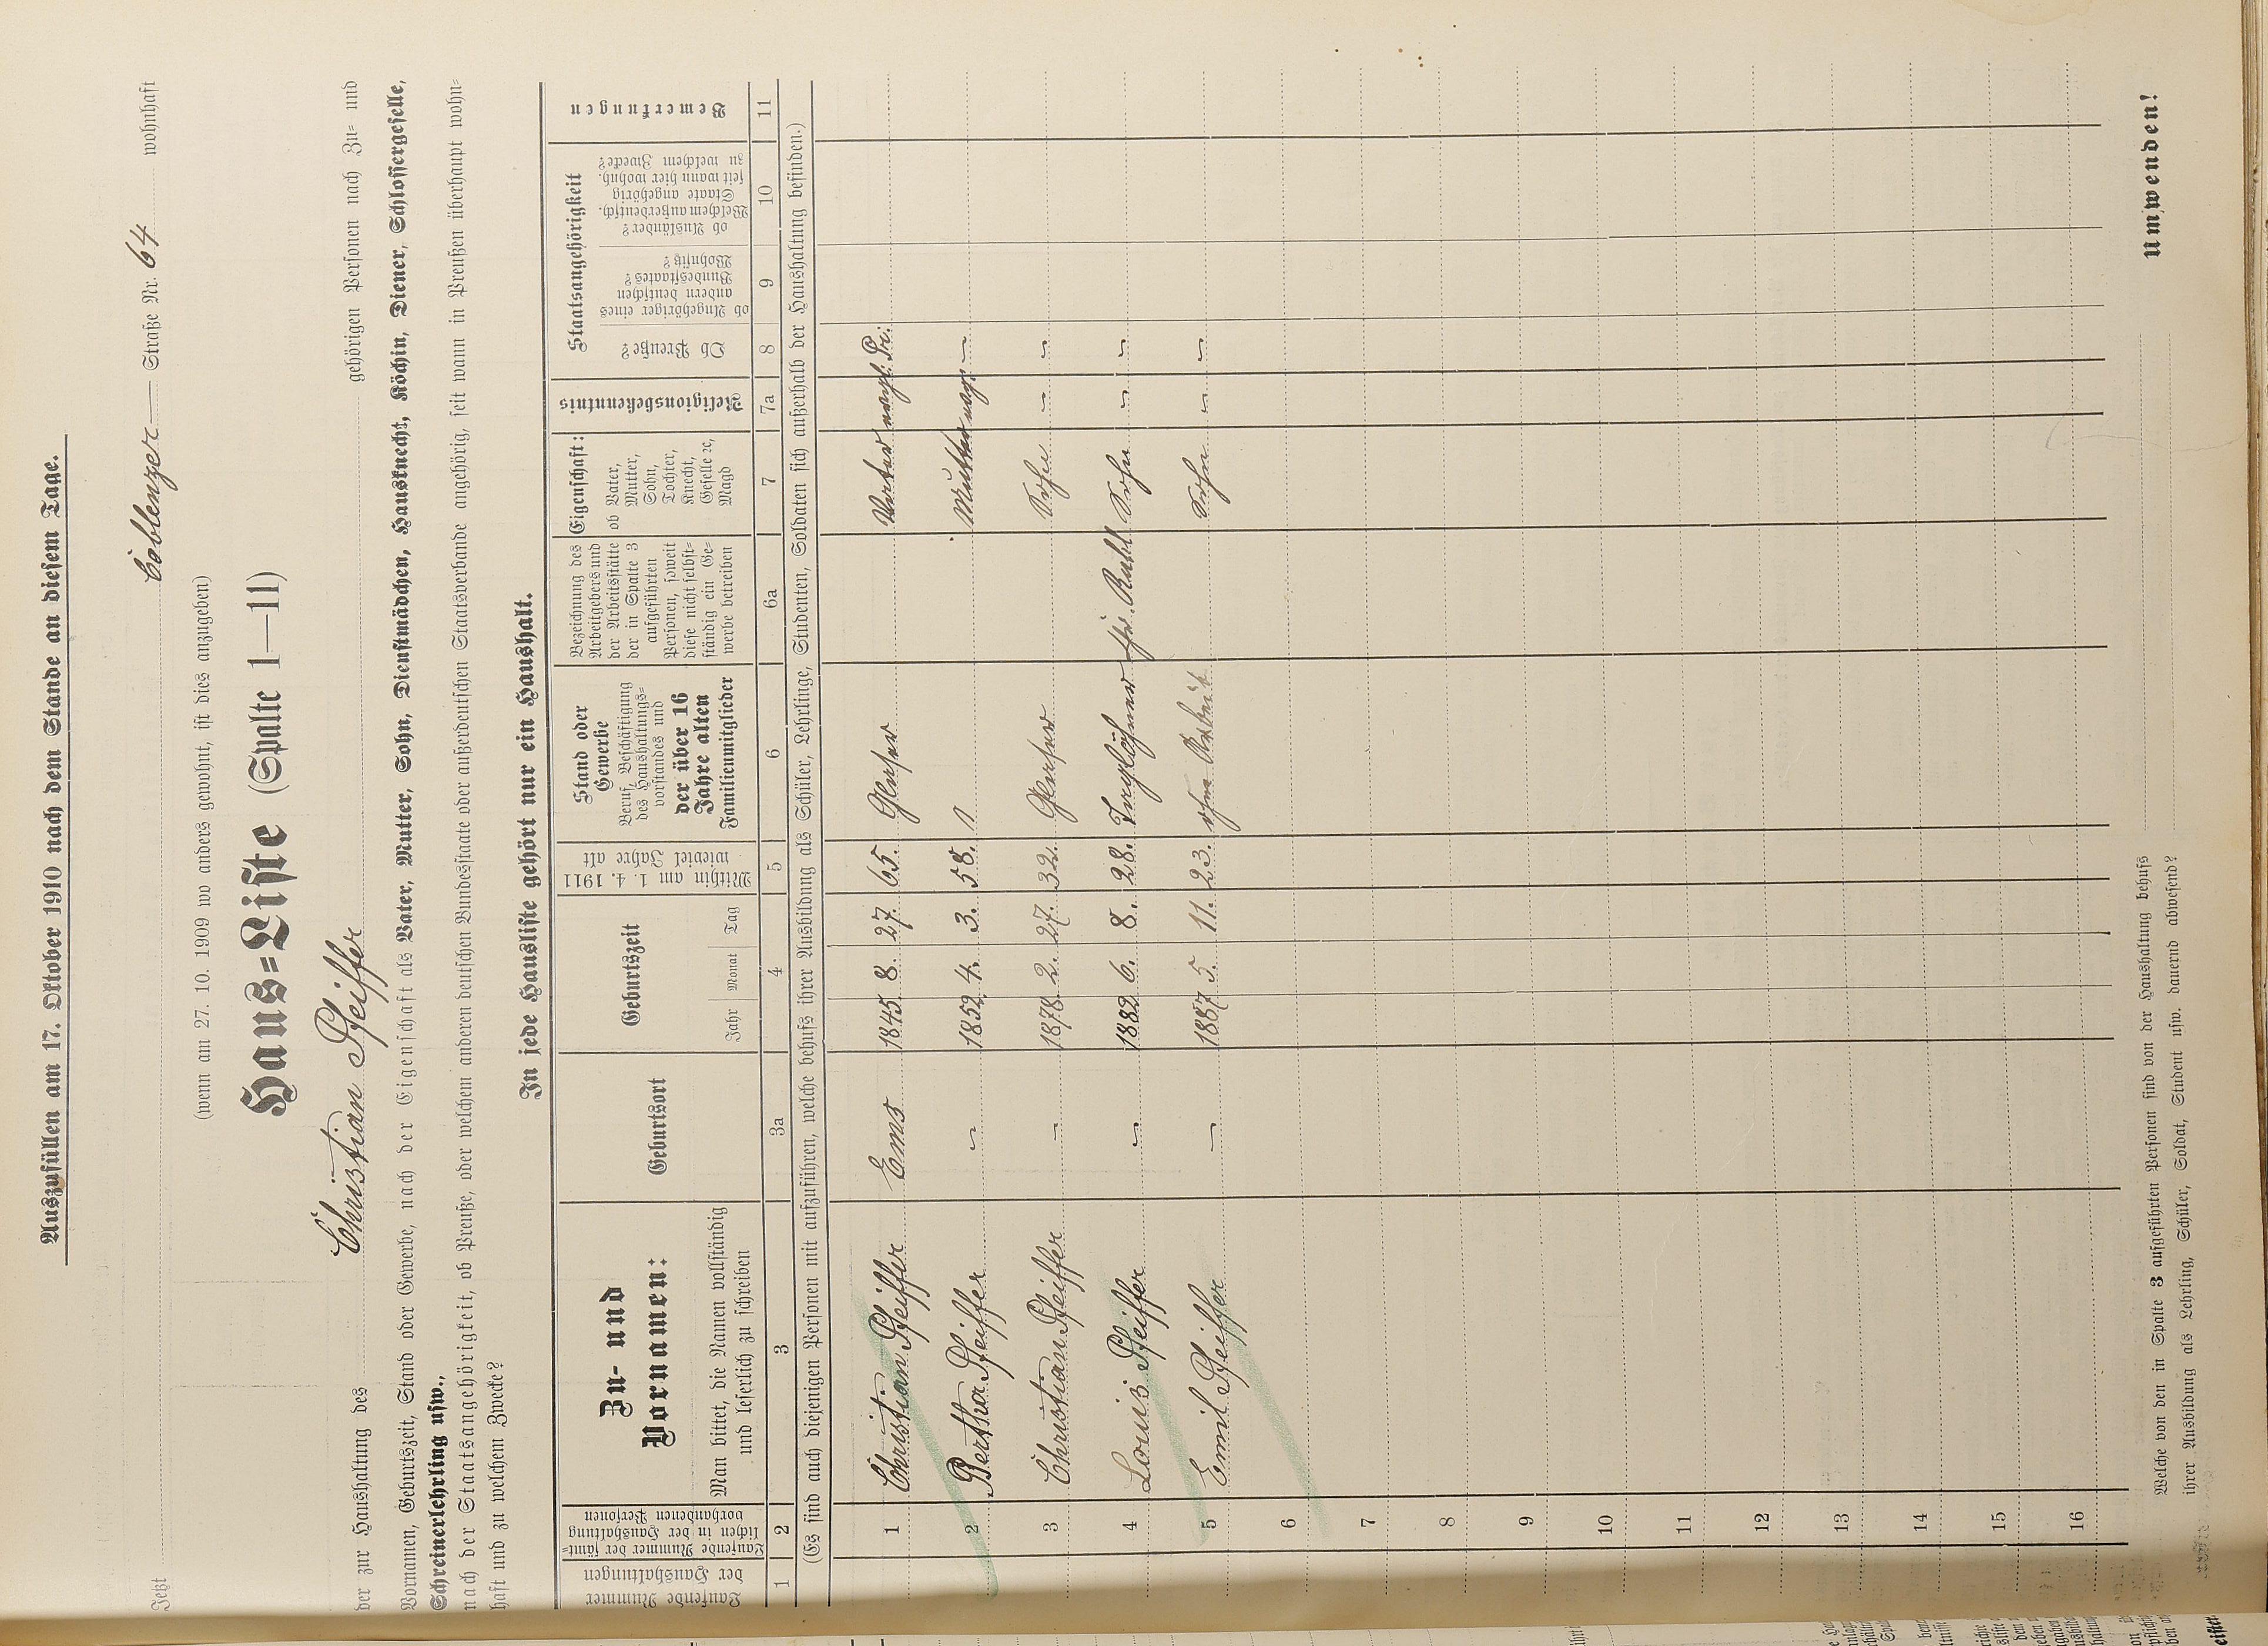 Auszufüllen am 17. Oktober 1910 nach dem Stande an diesem Tage.
Jetzt Coblenzer Straße Nr. 64 wohnhaft
(wenn am 27. 10. 1909 wo anders gewohnt, ist dies anzugeben)
Haus=Liste (Spalte 1—11)
der zur Haushaltung des Christian Pfeiffer gehörigen Personen nach Zu= und
Vornamen, Geburtszeit, Stand oder Gewerbe, nach der Eigenschaft als Vater, Mutter, Sohn, Dienstmädchen, Hausknecht, Köchin, Diener, Schlossergeselle,
Schreinerlehrling usw.,
nach der Staatsangehörigkeit, ob Preuße, oder welchem anderen deutschen Bundesstaate oder außerdeutschen Staatsverbande angehörig, seit wann in Preußen überhaupt wohn=
haft und zu welchem Zwecke?
In jede Hausliste gehört nur ein Haushalt.
Laufende Nummer
der Haushaltungen
Laufende Nummer der sämt=
lichen in der Haushaltung
vorhandenen Personen
Zu- und
Vornamen:
Man bittet, die Namen vollständig
und leserlich zu schreiben
Geburtsort
Geburtszeit
Jahr Monat Tag
Mithin am 1. 4. 1911
wieviel Jahre alt
Stand oder
Gewerbe
Beruf, Beschäftigung
des Haushaltungs=
vorstandes und
der über 16
Jahre alten
Familienmitglieder
Bezeichnung des
Arbeitgebers und
der Arbeitsstätte
der in Spalte 3
aufgeführten
Personen, soweit
diese nicht selbst=
ständig ein Ge=
werbe betreiben
Eigenschaft:
ob Vater,
Mutter,
Sohn,
Tochter,
Knecht,
Geselle ec,
Magd
Religionsbekenntnis
Staatsangehörigkeit
Ob Preuße?
ob Angehöriger eines
andern deutschen
Bundesstaates?
Wohnsitz?
ob Ausländer?
Welchem außerdeutsch.
Staate angehörig
seit wann hier wohnh.
zu welchem Zwecke?
Bemerkungen
1 2 3 3a 4 5 6 6a 7 7a 8 9 10 11
(Es sind auch diejenigen Personen mit aufzuführen, welche behufs ihrer Ausbildung als Schüler, Lehrlinge, Studenten, Soldaten sich außerhalb der Haushaltung befinden.)
1 Christian Pfeiffer Ems 1845. 8. 27. 65. Glaser Vater evgl. Pr.
2 Bertha Pfeiffer 1852. 4. 3. 58. " Mutter evg.
3 Christian Pfeiffer 1878. 2. 27. 32. Glaser Sohn
4 Louis Pfeiffer 1882. 6. 8. 28. Taglöhner Sohn
5 Emil Pfeiffer 1887. 5. 11. 23. ohne Arbeit Sohn
6
7
8
9
10
11
12
13
14
15
16
Welche von den in Spalte 3 aufgeführten Personen sind von der Haushaltung behufs
ihrer Ausbildung als Lehrling, Schüler, Soldat, Student usw. dauernd abwesend?
Umwenden!